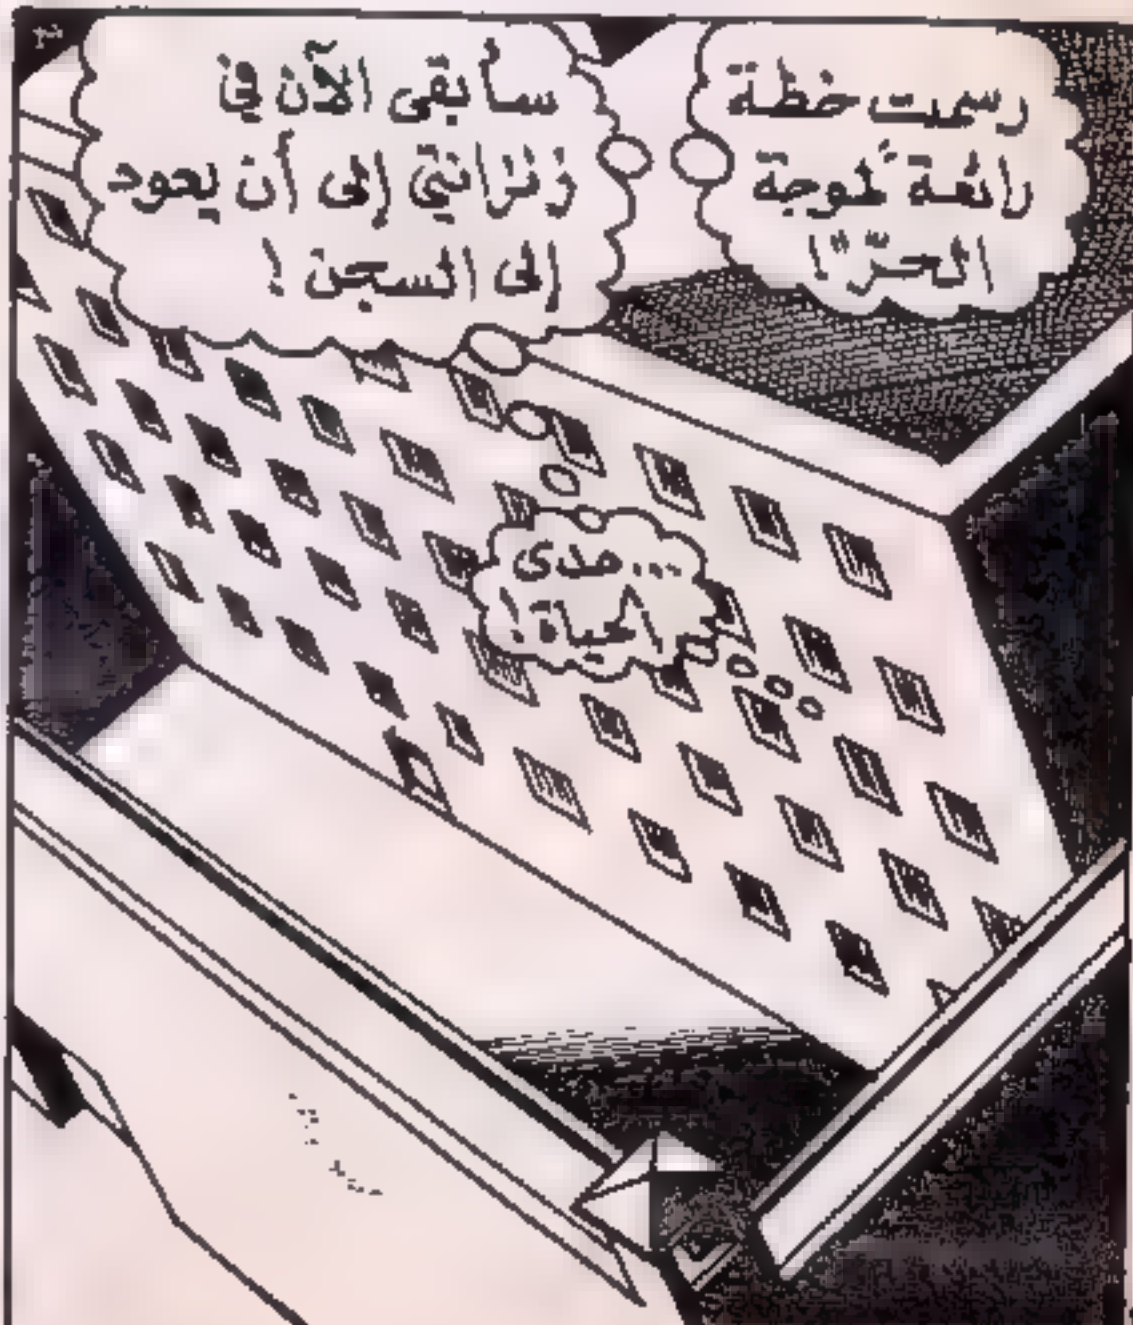 رسمت خطة
رائعة لموجة
الحرّ!
سأبقى الآن في
زنزانتي إلى أن يعود
إلى السجن!
...مدى
الحياة!